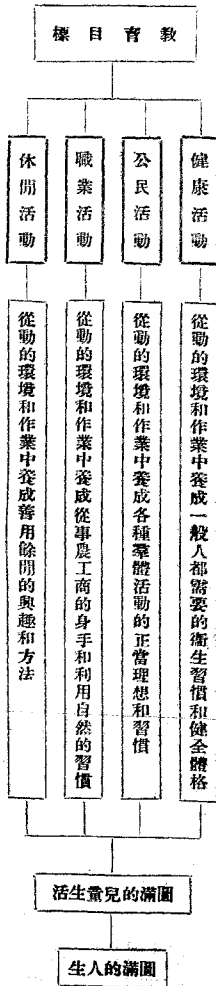 教育目標
健康活動
公民活動
職業活動
休閒活動
從動的環境和作業中養成一般人都需要的衛生習慣和健全體格
從動的環境和作業中養成各種羣體活動的正當理想和習慣
從動的環境和作業中養成從事農工商的身手和利用自然的習慣
從動的環境和作業中養成善用餘閒的興趣和方法
圓滿的兒童生活
圓滿的人生